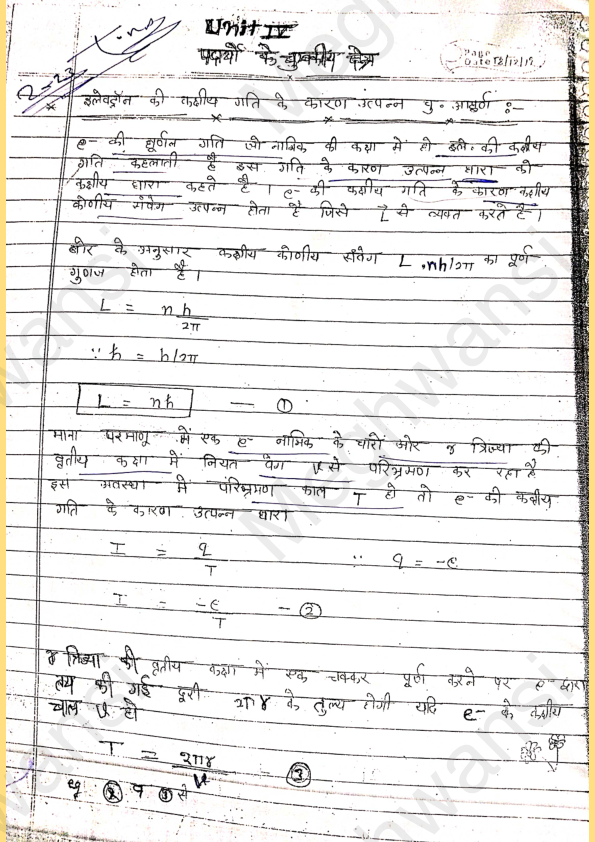 Unit IV
पदार्थो के चुम्बकीय क्षेत्र
Page
Date 18/12/17
इलेक्ट्रॉन की कक्षीय गति के कारण उत्पन्न चु. आघुर्ण :-
e- की घूर्णन गति जो नाभिक की कक्षा मे हो इले. की कक्षीय
गति कहलाती है इस गति के कारण उत्पन्न धारा को
कक्षीय धारा कहते है । e- की कक्षीय गति के कारण कक्षीय
कोणीय संवेग उत्पन्न होता है जिसे L से व्यक्त करते है ।
बोर के अनुसार कक्षीय कोणीय संवेग L, nh/2π का पूर्ण
गुणज होता है ।
L = n h/2π
∵ ħ = h/2π
L = nħ — ①
माना परमाणू में एक e- नाभिक के चारो ओर r त्रिज्या की
वृतीय कक्षा में नियत वेग v से परिभ्रमण कर रहा है
इस अवस्था मे परिभ्रमण काल T हो तो e- की कक्षीय
गति के कारण उत्पन्न धारा
I = q/T ∵ q = -e
I = -e/T — ②
r त्रिज्या की वृतीय कक्षा में एक चक्कर पूर्ण करने पर e- द्वारा
तय की गई दूरी 2πr के तुल्य होगी यदि e- के कक्षीय
चाल v हो
T = 2πr/v — ③
② व ③ से
Meghwansi
Meghwansi